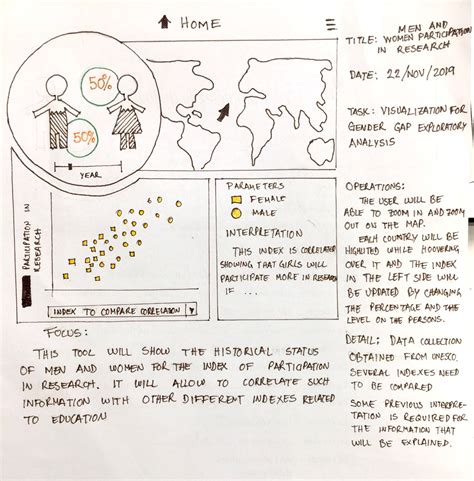 HOME
50%
50%
YEAR
PARTICIPATION IN
RESEARCH
INDEX TO COMPARE CORRELATION
PARAMETERS
FEMALE
MALE
INTERPRETATION
THIS INDEX IS CORRELATED
SHOWING THAT GIRLS WILL
PARTICIPATE MORE IN RESEARCH
IF ...
FOCUS:
THIS TOOL WILL SHOW THE HISTORICAL STATUS
OF MEN AND WOMEN FOR THE INDEX OF PARTICIPATION
IN RESEARCH. IT WILL ALLOW TO CORRELATE SUCH
INFORMATION WITH OTHER DIFFERENT INDEXES RELATED
TO EDUCATION
MEN AND
TITLE: WOMEN PARTICIPATION
IN RESEARCH
DATE: 22/NOV/2019
TASK: VISUALIZATION FOR
GENDER GAP EXPLORATORY
ANALYSIS
OPERATIONS:
THE USER WILL BE
ABLE TO ZOOM IN AND ZOOM
OUT ON THE MAP.
EACH COUNTRY WILL BE
HIGHLITED WHILE HOOVERING
OVER IT AND THE INDEX
IN THE LEFT SIDE WILL
BE UPDATED BY CHANGING
THE PERCENTAGE AND THE
LEVEL ON THE PERSONS.
DETAIL: DATA COLLECTION
OBTAINED FROM UNESCO.
SEVERAL INDEXES NEED
TO BE COMPARED
SOME PREVIOUS INTERPRE-
TATION IS REQUIRED FOR
THE INFORMATION THAT
WILL BE EXPLAINED.